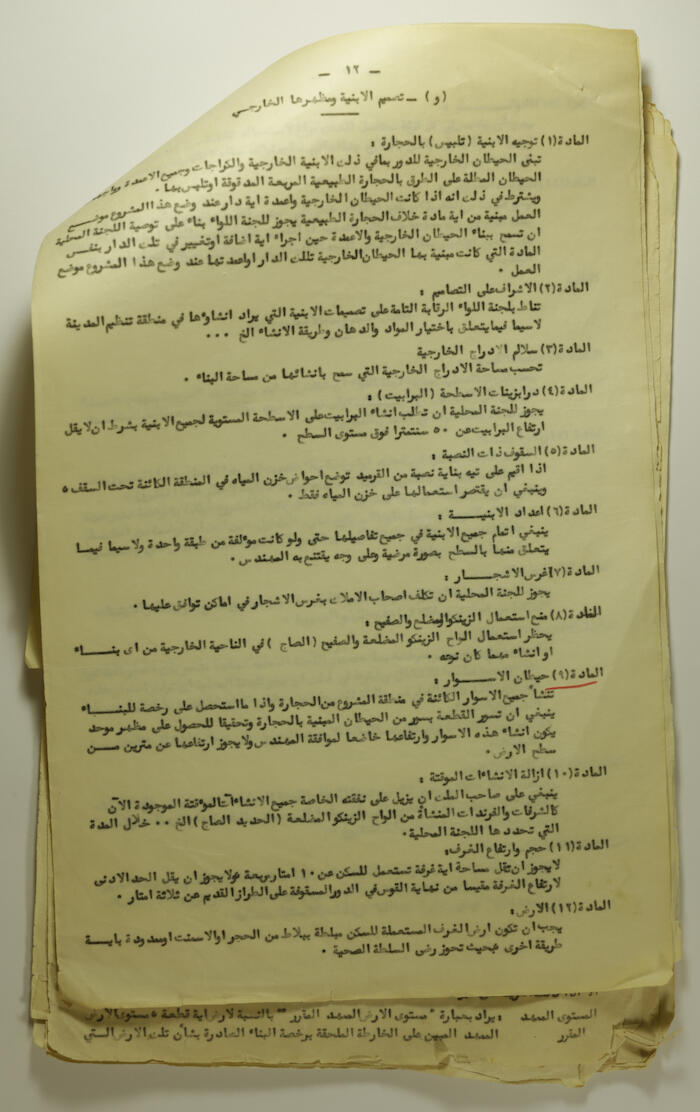 — ١٢ —
(و) — تصميم الابنية ومظهرها الخارجي
المادة (١) توجيه الابنية (تلبيس) بالحجارة :
تبنى الحيطان الخارجية للدور بمافي ذلك الابنية الخارجية والكراجات وجميع الاعمدة
الحيطان المطلة على الطرق بالحجارة الطبيعية المربعة المدقوقة اوتلبس بها .
ويشترط في ذلك انه اذا كانت الحيطان الخارجية واعمدة اية دار عند وضع هذا المشروع موضع
العمل مبنية من اية مادة خلاف الحجارة الطبيعية يجوز للجنة اللواء بناء على توصية اللجنة المحلية
ان تسمح ببناء الحيطان الخارجية والاعمدة حين اجراء اية اضافة اوتغيير في تلك الدار بنفس
المادة التي كانت مبنية بها الحيطان الخارجية لتلك الدار اواعمدتها عند وضع هذا المشروع موضع
العمل .
المادة (٢) الاشراف على التصاميم :
تناط بلجنة اللواء الرقابة التامة على تصميمات الابنية التي يراد انشاؤها في منطقة تنظيم المدينة
لاسيما فيما يتعلق باختيار المواد والدهان وطريقة الانشاء الخ ...
المادة (٣) سلالم الادراج الخارجية
تحسب مساحة الادراج الخارجية التي سمح بانشائها من مساحة البناء .
المادة (٤) درابزينات الاسطحة (البرابيت) :
يجوز للجنة المحلية ان تطلب انشاء البرابيت على الاسطحة المستوية لجميع الابنية بشرط ان لا يقل
ارتفاع البرابيت عن ٥٠ سنتمترا فوق مستوى السطح .
المادة (٥) السقوف ذات النصبة :
اذا اقيم على تيه بناية نصبة من القرميد توضع احواض خزن المياه في المنطقة الكائنة تحت السقف ٥
وينبغي ان يقتصر استعمالها على خزن المياه فقط .
المادة (٦) اعداد الابنيـــة :
ينبغي اتمام جميع الابنية في جميع تفاصيلها حتى ولو كانت مؤلفة من طبقة واحدة ولاسيما فيما
يتعلق منها بالسطح بصورة مرضية وعلى وجه يقتنع به المهندس .
المادة (٧) غرس الاشجـــار :
يجوز للجنة المحلية ان تكلف اصحاب الاملاك بغرس الاشجار في اماكن توافق عليها .
المادة (٨) منع استعمال الزينكو المضلع والصفيح :
يحظر استعمال الواح الزينكو المضلعة والصفيح (الصاج) في الناحية الخارجية من اى بنـــاء
او انشاء مهما كان نوعه .
المادة (٩) حيطان الاســـوار :
تنشأ جميع الاسوار الكائنة في منطقة المشروع من الحجارة واذا ما استحصل على رخصة للبنـــاء
ينبغي ان تسور القطعة بسور من الحيطان المبنية بالحجارة وتحقيقا للحصول على مظهر موحد
يكون انشاء هذه الاسوار وارتفاعها خاضعا لموافقة المهندس ولايجوز ارتفاعها عن مترين مـــن
سطح الارض .
المادة (١٠) ازالة الانشاءات الموقتة :
ينبغي على صاحب الملك ان يزيل على نفقته الخاصة جميع الانشاءات الموقتة الموجودة الآن
كالشرفات والفرندات المنشاة من الواح الزينكو المضلعة (الحديد الصاج) الخ .. خلال المدة
التي تحددها اللجنة المحلية .
المادة (١١) حجم وارتفاع الغرف :
لايجوز ان تقل مساحة اية غرفة تستعمل للسكن عن ١٠ امتار مربعة ولايجوز ان يقل الحد الادنى
لارتفاع الغرفة مقيسا من نهاية القوس في الدور المسقوفة على الطراز القديم عن ثلاثة امتار .
المادة (١٢) الارض :
يجب ان تكون ارض الغرف المستعملة للسكن مبلطة ببلاط من الحجر اوالاسمنت اوسدودة بايـــة
طريقة اخرى بحيث تحوز رضى السلطة الصحية .
المستوى الممهد : يراد بعبارة " مستوى الارض الممهد المقرر " بالنسبة لارض اية قطعة ٥ مستوى الارض
المقرر الممهد المبين على الخارطة الملحقة برخصة البناء الصادرة بشأن تلك الارض الـتي